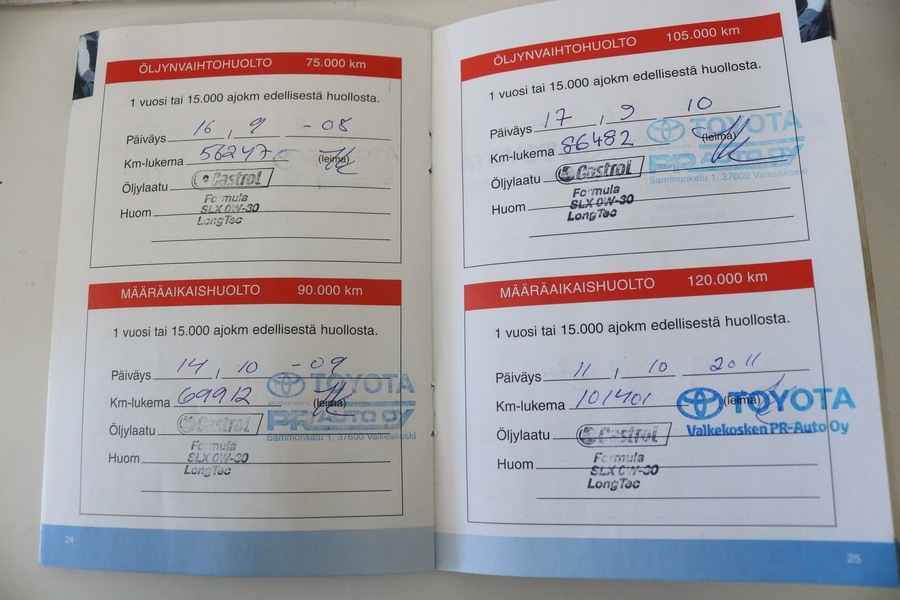 ÖLJYNVAIHTOHUOLTO 75.000 km
1 vuosi tai 15.000 ajokm edellisestä huollosta.
Päiväys 16 , 9 - 08
Km-lukema 56247 (leima)
Öljylaatu Castrol
Formula
Huom SLX 0W-30
LongTec
MÄÄRÄAIKAISHUOLTO 90.000 km
1 vuosi tai 15.000 ajokm edellisestä huollosta.
Päiväys 14 , 10 - 09
TOYOTA
Km-lukema 69912 (leima)
PR-AUTO OY
Öljylaatu Castrol
Sammonkatu 1, 37600 Valkeakoski
Formula
Huom SLX 0W-30
LongTec
24
ÖLJYNVAIHTOHUOLTO 105.000 km
1 vuosi tai 15.000 ajokm edellisestä huollosta.
Päiväys 17 , 9 10
TOYOTA
Km-lukema 86482 (leima)
PR-AUTO OY
Öljylaatu Castrol
Sammonkatu 1, 37600 Valkeakoski
Formula
Huom SLX 0W-30
LongTec
MÄÄRÄAIKAISHUOLTO 120.000 km
1 vuosi tai 15.000 ajokm edellisestä huollosta.
Päiväys 11 , 10 2011
Km-lukema 101401 (leima)
TOYOTA
Valkekosken PR-Auto Oy
Öljylaatu Castrol
Formula
Huom SLX 0W-30
LongTec
25